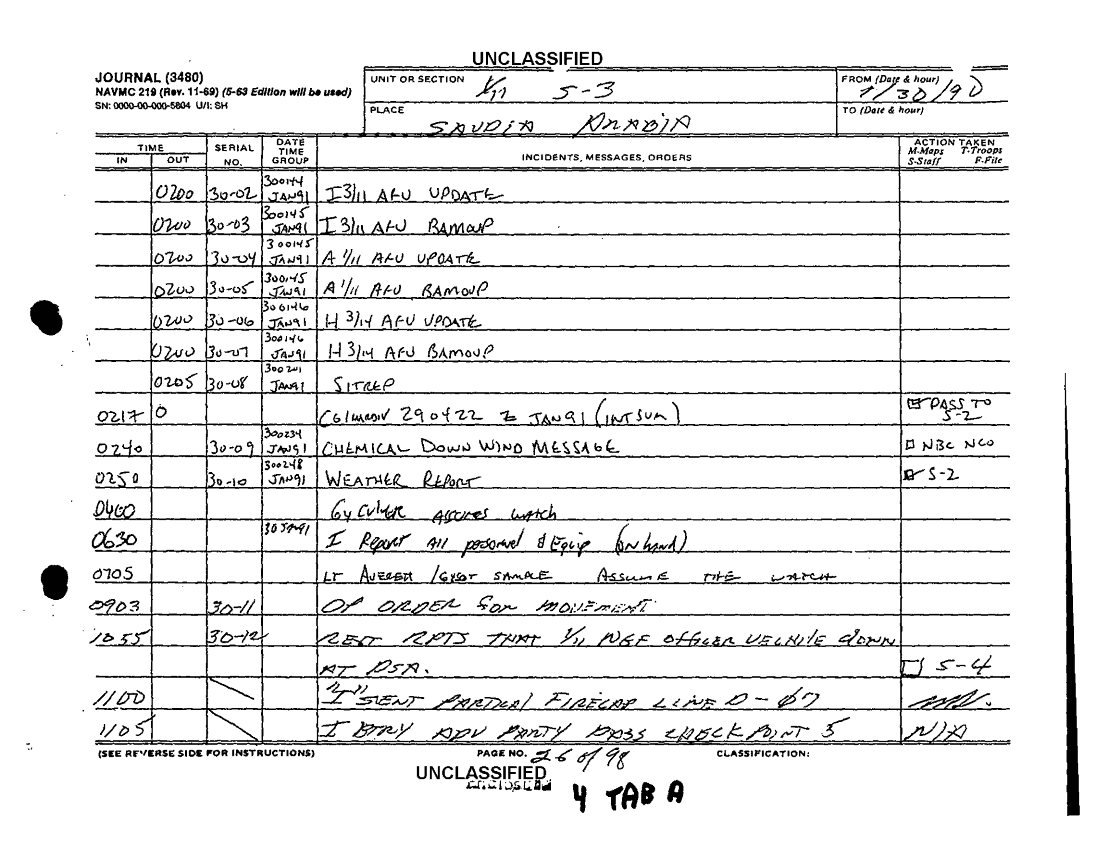 UNCLASSIFIED
JOURNAL (3480)
NAVMC 219 (Rev. 11-69) (5-63 Edition will be used)
SN: 0000-00-000-5804 U/I: SH
UNIT OR SECTION 1/11 S-3
FROM (Date & hour) 1/30/90
PLACE SAUDIA ARABIA
TO (Date & hour)
TIME IN OUT SERIAL NO. DATE TIME GROUP INCIDENTS, MESSAGES, ORDERS ACTION TAKEN M-Maps T-Troops S-Staff F-File
0200 30-02 300144 JAN91 I 3/11 AFU UPDATE
0200 30-03 300145 JAN91 I 3/11 AFU BAMOUP
0200 30-04 300145 JAN91 A 1/11 AFU UPDATE
0200 30-05 300145 JAN91 A 1/11 AFU BAMOUP
0200 30-06 300146 JAN91 H 3/14 AFU UPDATE
0200 30-07 300146 JAN91 H 3/14 AFU BAMOUP
0205 30-08 300201 JAN91 SITREP
0217 0 CG 290422 Z JAN91 (INTSUM) PASS TO S-2
0240 30-09 300234 JAN91 CHEMICAL DOWN WIND MESSAGE NBC NCO
0250 30-10 300248 JAN91 WEATHER REPORT S-2
0400 Gy assumes watch
0630 30 JAN 91 I Report All personnel & Equip (on hand)
0705 LT SAMPLE ASSUME THE WATCH
0903 30-11 OP ORDER FOR MOVEMENT
1055 30-12 REGT RPTS THAT 1/11 NGF OFFICER VEHICLE DOWN
AT DSA. S-4
1100 "I" SENT PARTIAL FIRECAP LINE D-07
1105 I BTRY ADV PARTY PASS CHECKPOINT 5 N/A
(SEE REVERSE SIDE FOR INSTRUCTIONS) PAGE NO. 26 of 98 CLASSIFICATION:
UNCLASSIFIED
4 TAB A